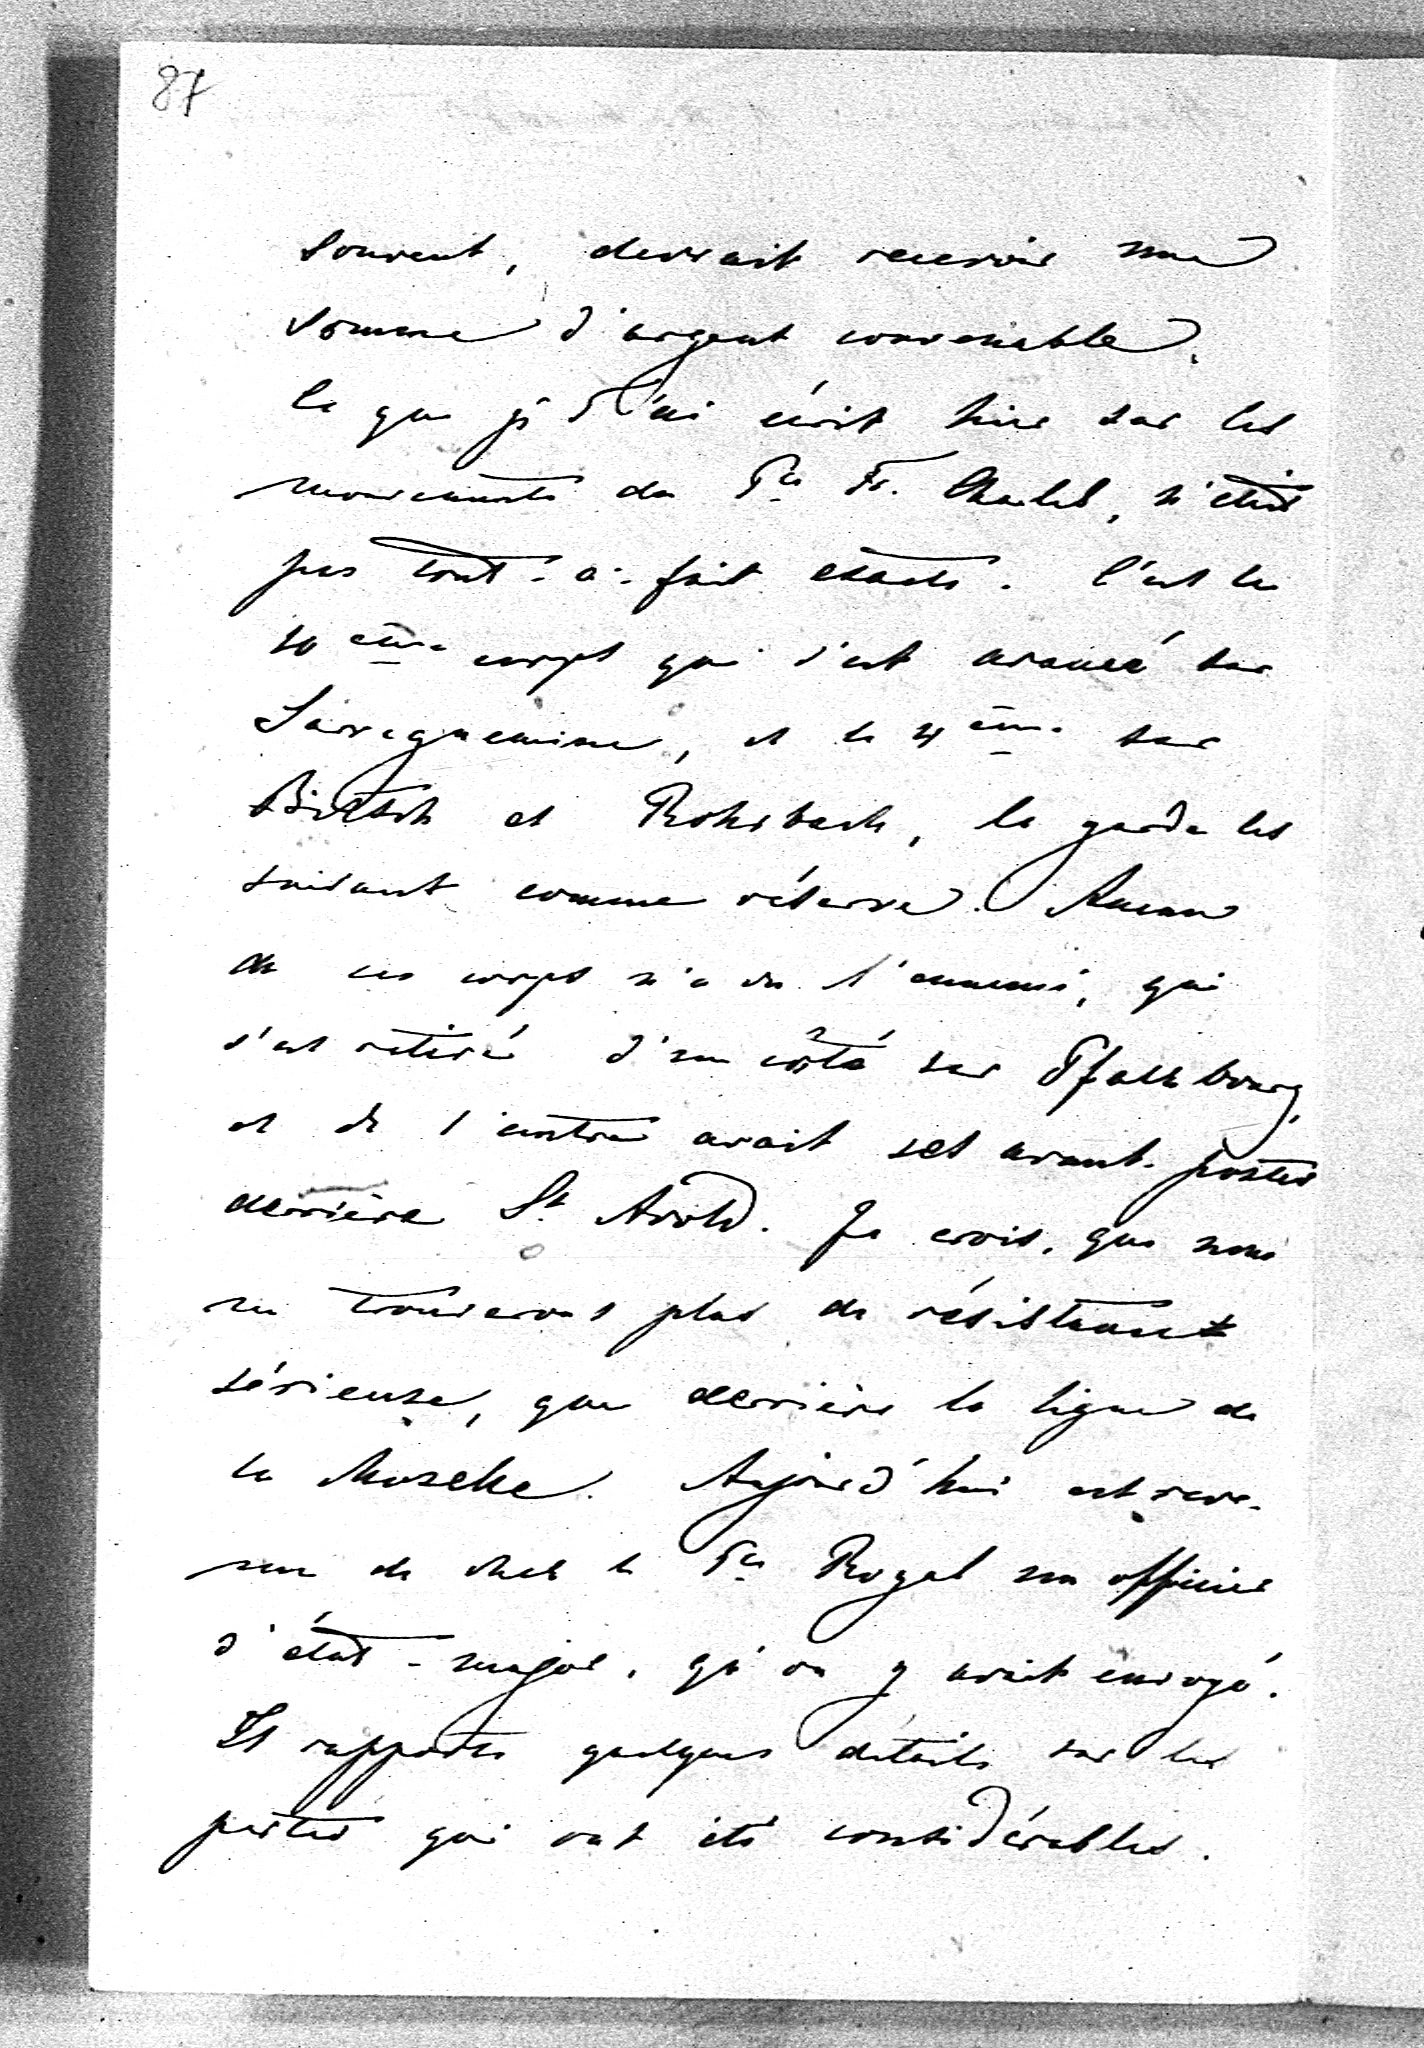 87
souvent, devrait recevoir une
somme d'argent convenable.
Ce que je t'ai écrit hier sur les
mouvements du Pce Fr. Charles, n'était
pas tout-à-fait exacts. C'est le
10 ème corps qui s'est avancé sur
Sarreguemine, et le 4 ème sur
Bitsch et Rohrbach, la garde les
suivant comme réserve. Aucun
de ces corps n'a vu l'ennemi, qui
s'est retiré d'un côté sur Pfalzbourg,
et de l'autre avait ses avant-postes
derrière St. Avold. Je crois, que nous
ne trouverons plus de résistance
sérieuse, que derrière la ligne de
la Moselle. Aujourd'hui est reve-
nu de chez le Pce Royal un officier
d'état-major, qu'on y avait envoyé.
Il rapporte quelques détails sur les
pertes qui ont été considérables.